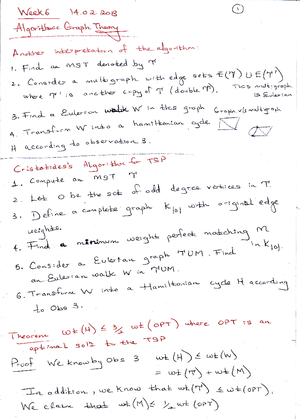 Week 6 14.02.2013
1
Algorithmic Graph Theory
Another interpretation of the algorithm:
1. Find an MST denoted by T
2. Consider a multigraph with edge sets E(T) ∪ E(T')
where T' is another copy of T (double T). This multigraph
is Eulerian
3. Find a Eulerian walk W in this graph Graph vs multigraph
4. Transform W into a hamiltonian cycle
H according to observation 3.
Cristofides's Algorithm for TSP
1. Compute an MST T
2. Let O be the set of odd degree vertices in T
3. Define a complete graph K|O| with original edge
weights.
4. Find a minimum weight perfect matching M
in K|O|.
5. Consider a Eulerian graph T∪M. Find
an Eulerian walk W in T∪M.
6. Transform W into a Hamiltonian cycle H according
to Obs 3.
Theorem wt(H) ≤ 3/2 wt(OPT) where OPT is an
optimal sol^n to the TSP
Proof We know by Obs 3 wt(H) ≤ wt(W)
= wt(T) + wt(M)
In addition, we know that wt(T) ≤ wt(OPT).
We claim that wt(M) ≤ 1/2 wt(OPT)